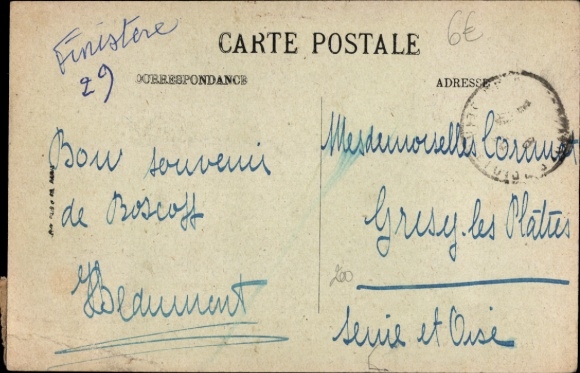 Finistere
29
6€
CARTE POSTALE
CORRESPONDANCE
ADRESSE
Bon souvenir
de Roscoff
HBeaumont
Mesdemoiselles
Grisy-les Plâtres
Seine et Oise
200